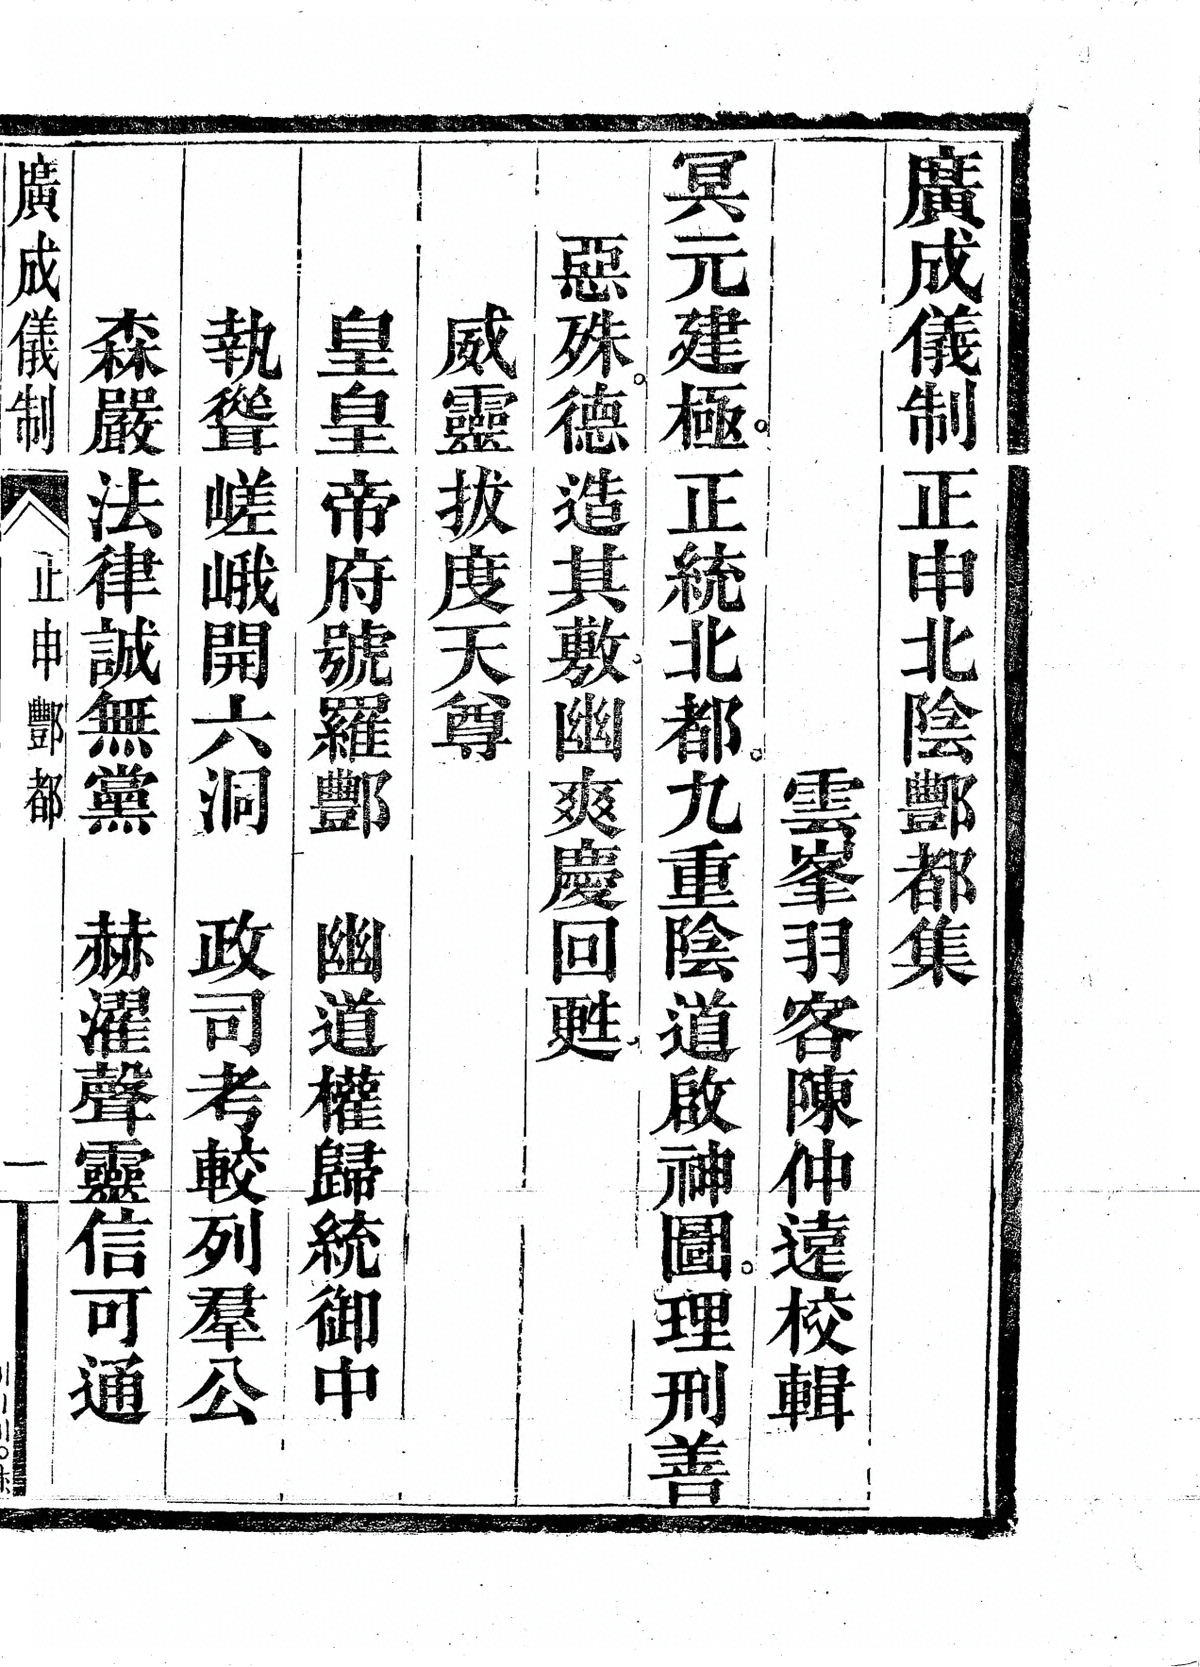 廣成儀制正申北陰酆都集
雲峯羽客陳仲遠校輯
冥元建極。正統北都。九重陰道啟神圖。理刑善
惡殊。德造其敷。幽爽慶回甦。
威靈拔度天尊
皇皇帝府號羅酆　幽道權歸統御中
執聳嵯峨開六洞　政司考較列羣公
森嚴法律誠無黨　赫濯聲靈信可通
廣成儀制　正申酆都　一